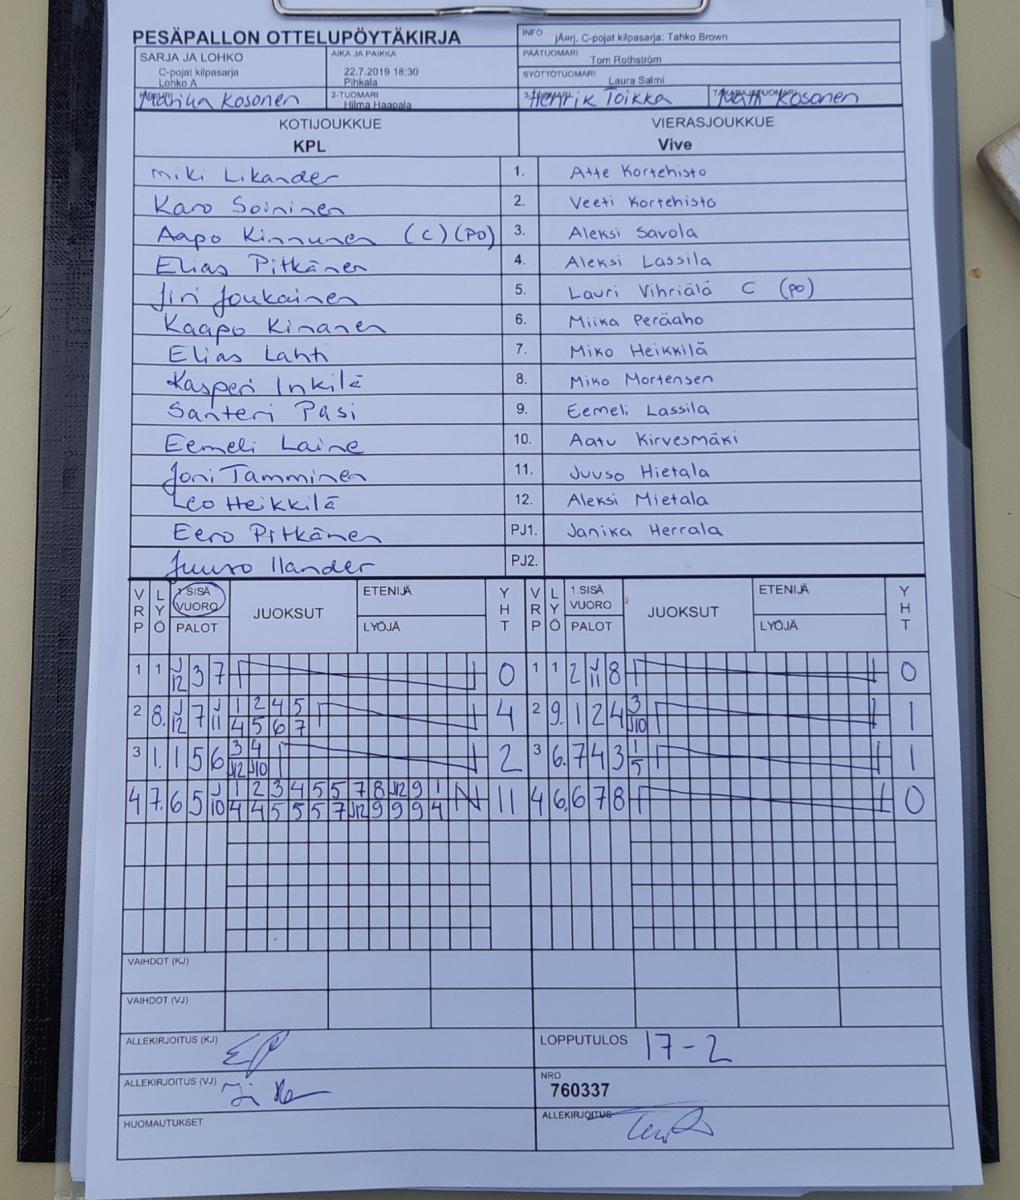 PESÄPALLON OTTELUPÖYTÄKIRJA
INFO jAarj. C-pojat kilpasarja: Tahko Brown
SARJA JA LOHKO
C-pojat kilpasarja
Lohko A
AIKA JA PAIKKA
22.7.2019 18:30
Pihkala
PÄÄTUOMARI Tom Rothström
SYÖTTÖTUOMARI Laura Salmi
Marika Kosonen
2-TUOMARI
Hilma Haapala
Henrik Toikka
Matti Kosonen
KOTIJOUKKUE VIERASJOUKKUE
KPL Vive
Miki Likander 1. Atte Kortehisto
Karo Soininen 2. Veeti Kortehisto
Aapo Kinnunen (C) (PO) 3. Aleksi Savola
Elias Pitkänen 4. Aleksi Lassila
Jiri Joukainen 5. Lauri Vihriälä C (PO)
Kaapo Kinanen 6. Miika Peräaho
Elias Lahti 7. Miko Heikkilä
Kasperi Inkilä 8. Miko Mortensen
Santeri Pasi 9. Eemeli Lassila
Eemeli Laine 10. Aatu Kirvesmäki
Joni Tamminen 11. Juuso Hietala
Leo Heikkilä 12. Aleksi Mietala
Eero Pitkänen PJ1. Janika Herrala
Juuso Ilander PJ2.
VRP LYÖ 1.SISÄ VUORO PALOT JUOKSUT ETENIJÄ LYÖJÄ YHT VRP LYÖ 1.SISÄ VUORO PALOT JUOKSUT ETENIJÄ LYÖJÄ YHT
1 1 J12 3 7 0 1 1 2 J11 8 0
2 8. J12 7 J11 1 2 4 5 4 2 9. 1 2 4 3 1
4 5 6 7 J10
3 1. 1 5 6 3 4 2 3 6. 7 4 3 1 1
J12 J10 5
4 7. 6 5 J10 1 2 3 4 5 5 7 8 J12 9 1 N 11 4 6. 6 7 8 0
4 4 5 5 5 7 J12 9 9 9 4
VAIHDOT (KJ)
VAIHDOT (VJ)
ALLEKIRJOITUS (KJ)
LOPPUTULOS 17-2
ALLEKIRJOITUS (VJ)
NRO
760337
HUOMAUTUKSET
ALLEKIRJOITUS